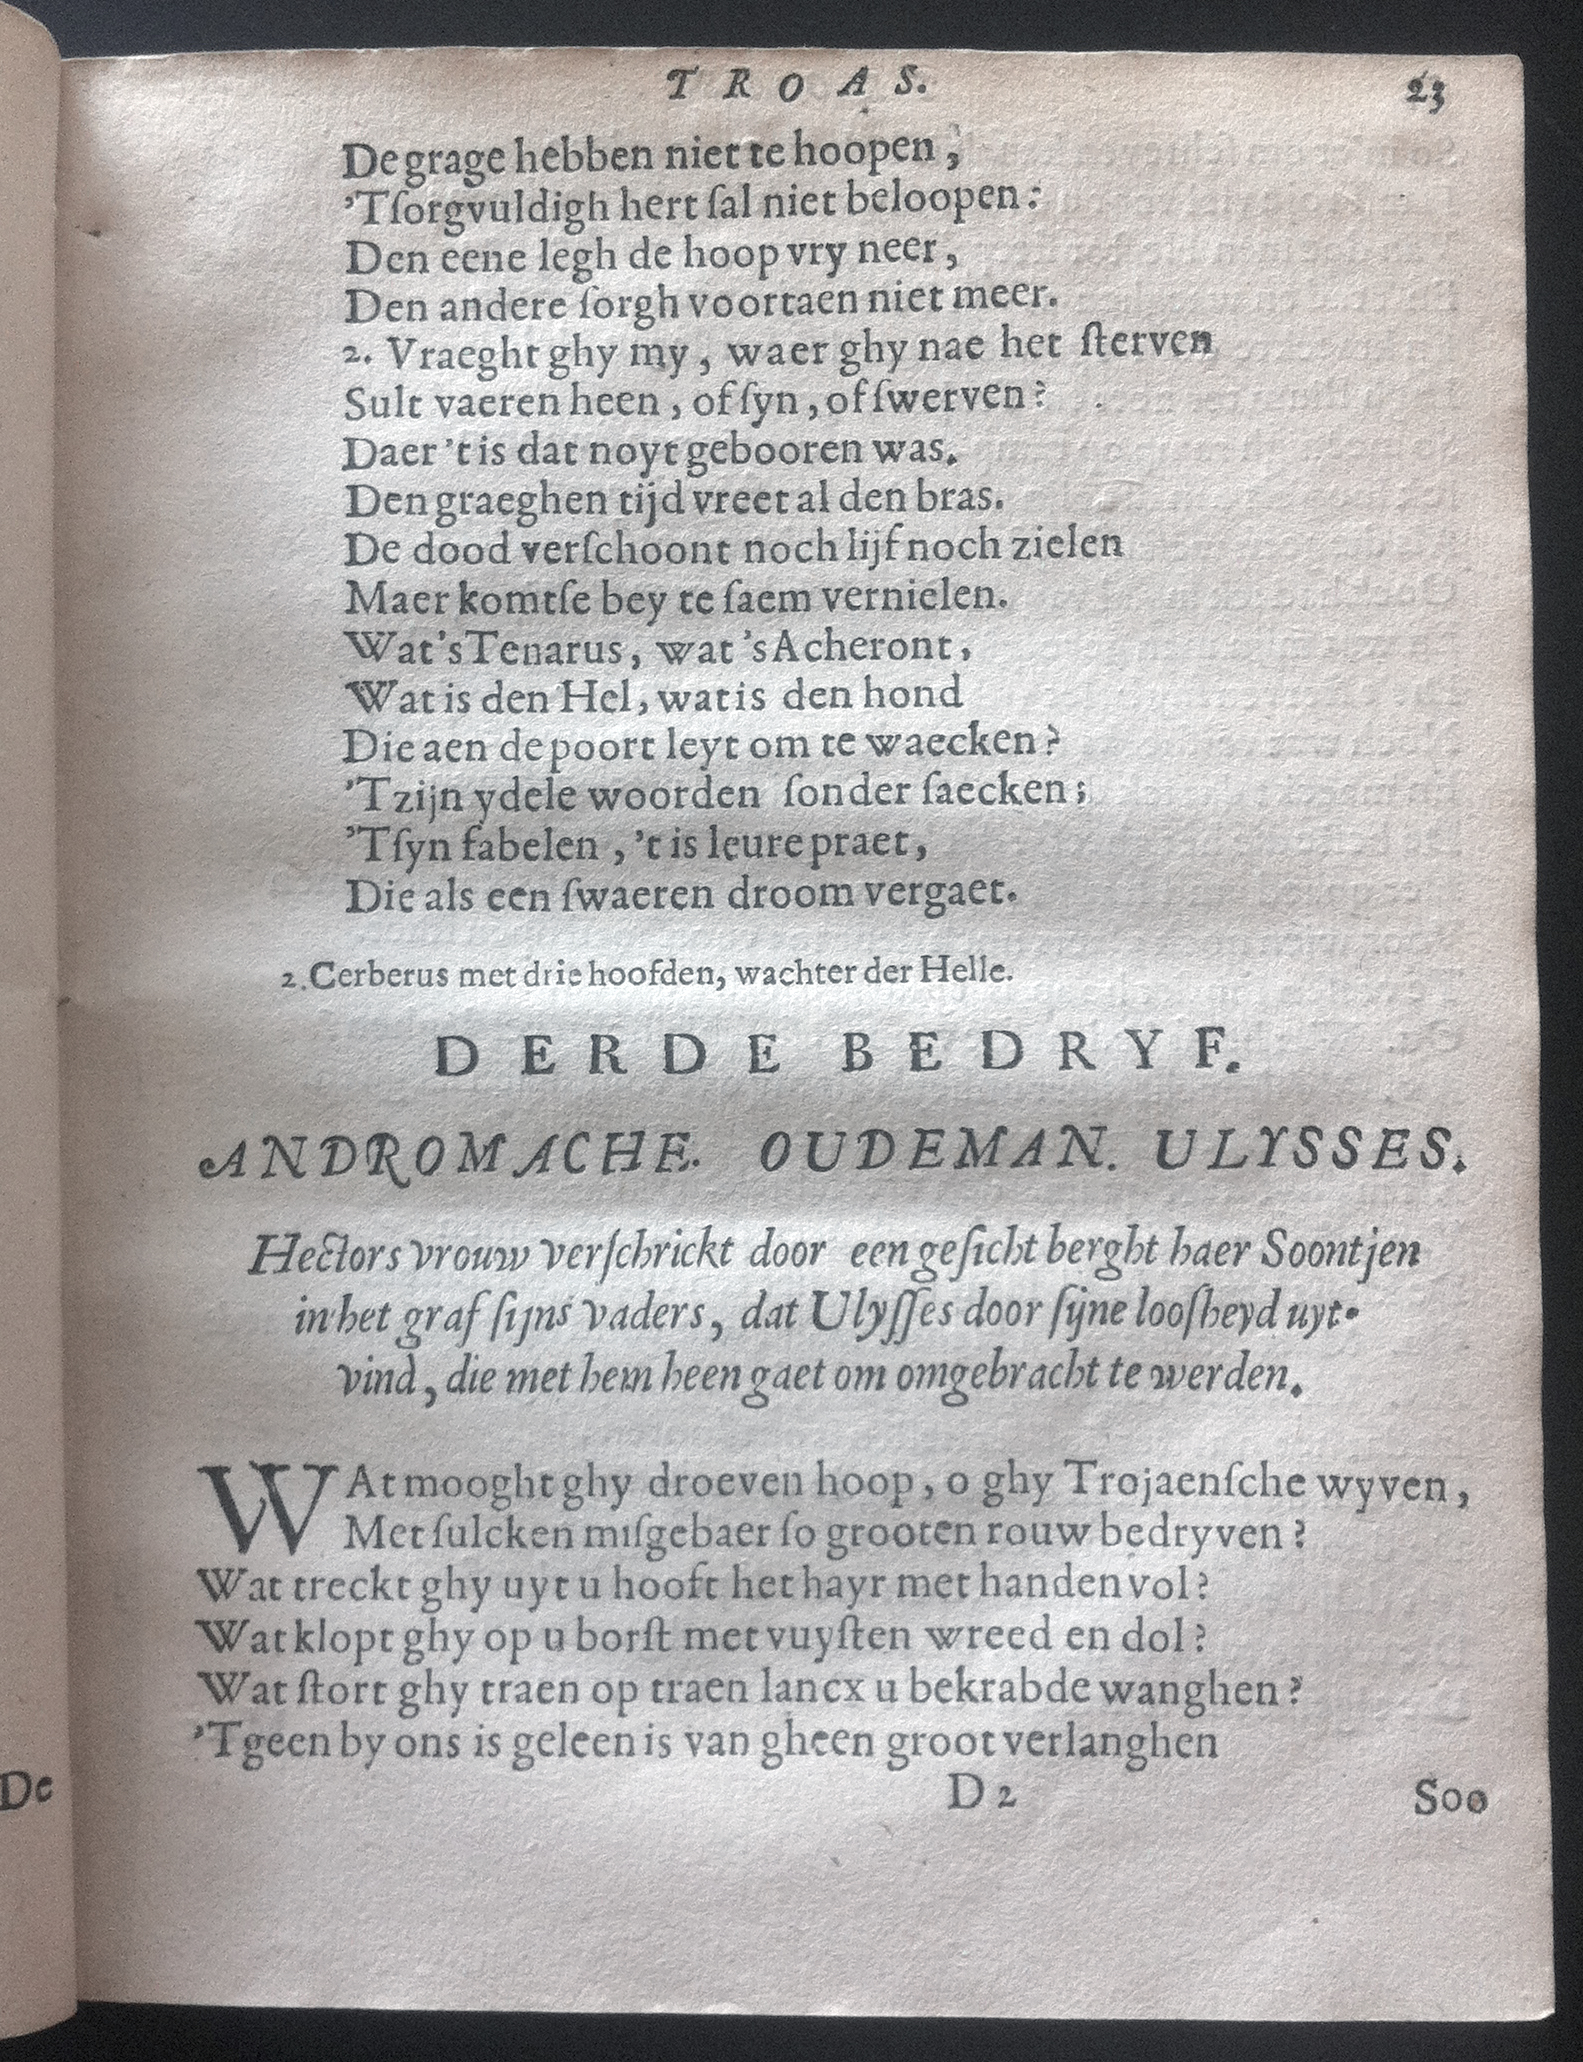 TROAS. 23
De grage hebben niet te hoopen,
'Tſorgvuldigh hert ſal niet beloopen:
Den eene legh de hoop vry neer,
Den andere ſorgh voortaen niet meer.
2. Vraeght ghy my, waer ghy nae het ſterven
Sult vaeren heen, of ſyn, of ſwerven?
Daer 't is dat noyt gebooren was.
Den graeghen tijd vreet al den bras.
De dood verſchoont noch lijf noch zielen
Maer komtſe bey te ſaem vernielen.
Wat's Tenarus, wat 's Acheront,
Wat is den Hel, wat is den hond
Die aen de poort leyt om te waecken?
'T zijn ydele woorden ſonder ſaecken;
'Tſyn fabelen, 't is leure praet,
Die als een ſwaeren droom vergaet.
2. Cerberus met drie hoofden, wachter der Helle.
DERDE BEDRYF.
ANDROMACHE. OUDEMAN. ULYSSES.
Hectors vrouw verſchrickt door een geſicht berght haer Soontjen
in het graf ſijns vaders, dat Ulyſſes door ſijne loosheyd uyt-
vind, die met hem heen gaet om omgebracht te werden.
WAt mooght ghy droeven hoop, o ghy Trojaenſche wyven,
Met ſulcken miſgebaer ſo grooten rouw bedryven?
Wat treckt ghy uyt u hooft het hayr met handen vol?
Wat klopt ghy op u borſt met vuyſten wreed en dol?
Wat ſtort ghy traen op traen lancx u bekrabde wanghen?
'Tgeen by ons is geleen is van gheen groot verlanghen
De
D 2 Soo